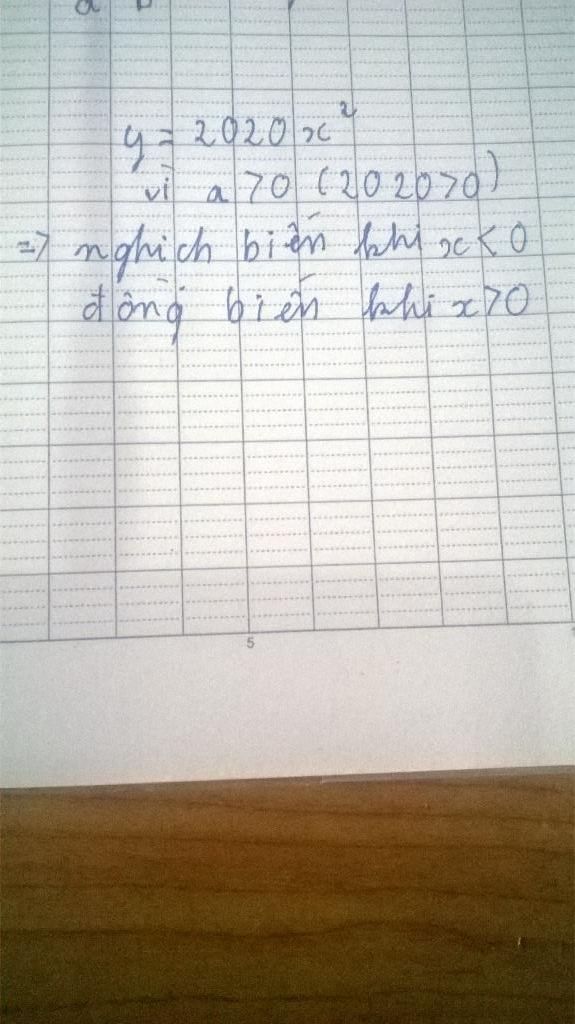 y = 2020x²
vì a > 0 (2020>0)
=> nghịch biến khi x < 0
đồng biến khi x > 0
5